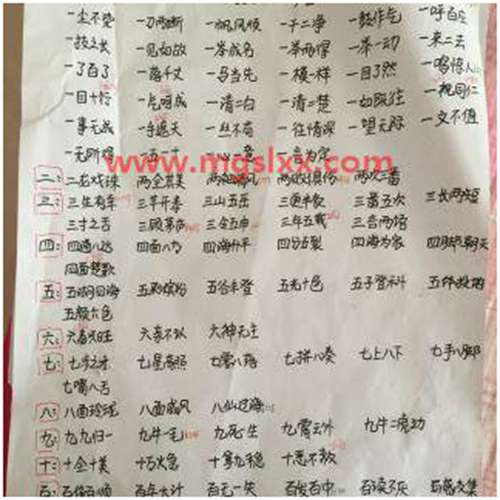 一尘不染 一刀两断 一帆风顺 一干二净 一鼓作气 一呼百应
一技之长 一见如故 一举成名 一举两得 一举一动 一来二去
一了百了 一落千丈 一马当先 一模一样 一目了然 一鸣惊人
一目十行 一气呵成 一清二白 一清二楚 一如既往 一视同仁
一事无成 一手遮天 一丝不苟 一往情深 一望无际 一文不值
一无所
www.mgslxx.com
二: 二龙戏珠 两全其美 两
三: 三生有幸 三羊开泰 三山五岳 三番五次 三长两短
三寸之舌 三顾茅庐 三令五申 三年五载
四: 四通八达 四面八方 四海升平 四分五裂 四海为家 四脚朝天
四面楚歌
五: 五湖四海 五彩缤纷 五谷丰登 五光十色 五子登科 五体投地
五颜六色
六: 六畜兴旺 六亲不认 六神无主
七: 七步之才 七星高照 七零八落 七拼八凑 七上八下 七手八脚
七嘴八舌
八: 八面玲珑 八面威风 八仙过海
九: 九九归一 九牛一毛 九死一生 九霄云外 九牛二虎之力
十: 十全十美 十万火急 十拿九稳 十恶不赦
百: 百依百顺 百年大计 百无一失 百发百中 百读不厌 百废